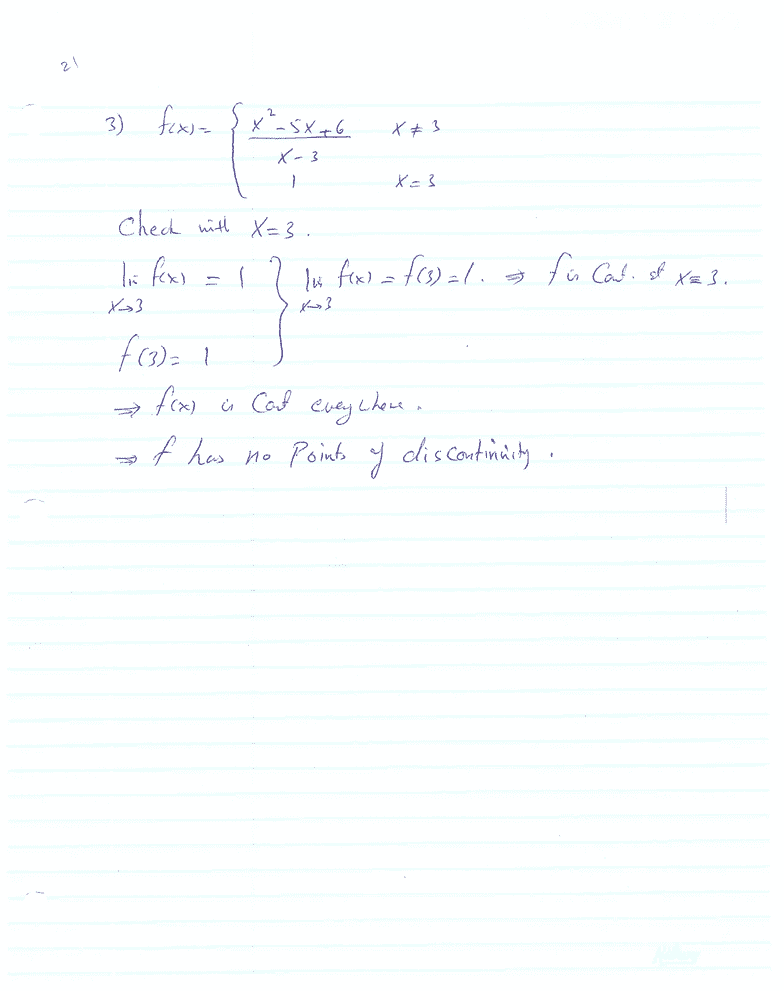 21
3) f(x) = { x² - 5x + 6 x ≠ 3
x - 3
1 x = 3
Check with x = 3.
lim f(x) = 1 } lim f(x) = f(3) = 1. ⇒ f is Cont. at x = 3.
x→3 x→3
f(3) = 1
⇒ f(x) is Cont everywhere.
⇒ f has no Points of discontinuity.